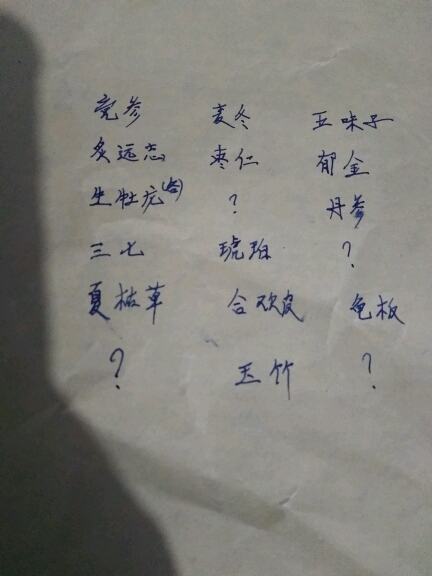 党参 麦冬 五味子
炙远志 枣仁 郁金
生牡疠(含) ? 丹参
三七 琥珀 ?
夏枯草 合欢皮 龟板
? 玉竹 ?